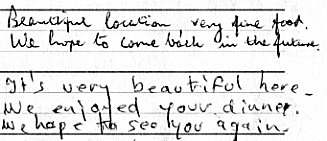 Beautiful location very fine food.
We hope to come back in the future.
It's very beautiful here.
We enjoyed your dinner.
We hope to see you again.